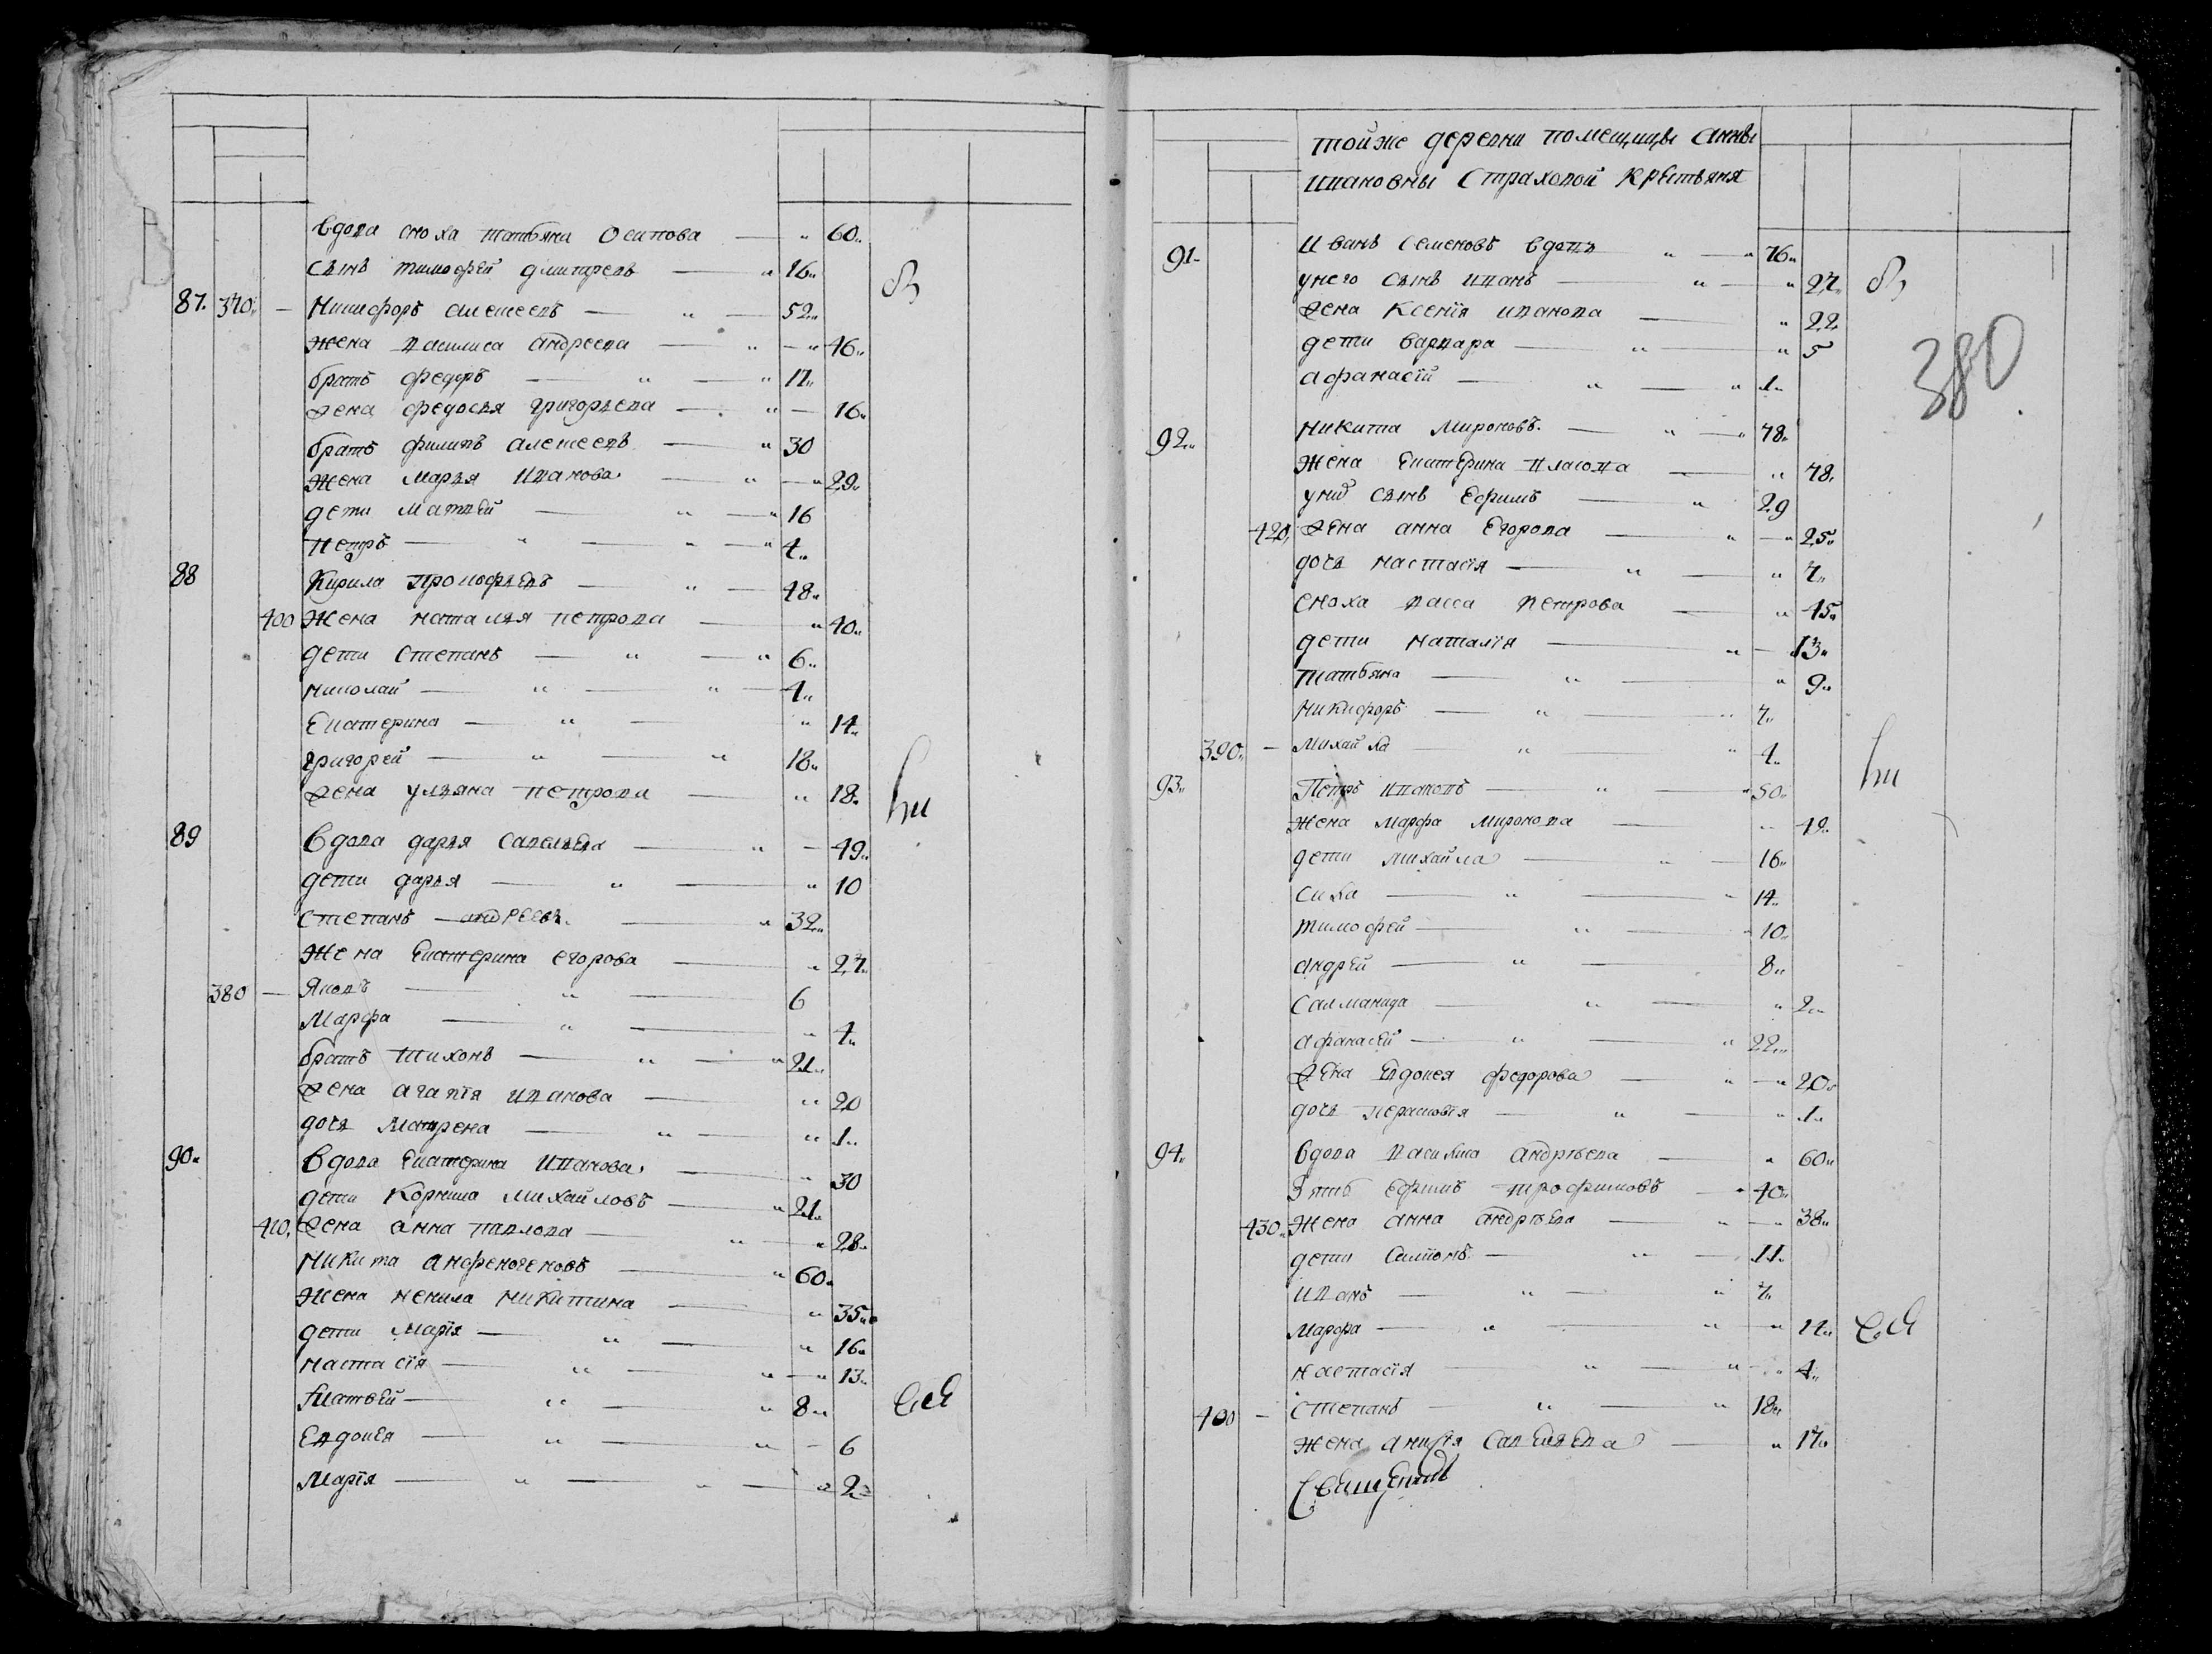 вдова сноха татьяна Осипова — „ 60„
сынъ тимофей дмитревъ — „ 16„
87. 370„ — Никифоръ алексеевъ — „ — 52„
жена василиса андреева — „ — „ 46„
братъ федоръ — „ — „ 17„
жена федосья григорьева — „ — 16„
братъ филипъ алексеевъ — „ 30
жена марья Иванова — „ — „ 29„
дети матвей — „ — „ 16
петръ — „ — „ — „ 4„
88 Кирила прокофьевъ — „ — 48„
400 жена наталья петрова — „ 40„
дети степанъ — „ — „ 6„
николай — „ — „ — 4„
Екатерина — „ — „ 14„
григорей — „ — „ 18„
жена ульяна петрова — „ 18„
89 вдова дарья савельева — „ — 49„
дети дарья — „ — „ 10
степанъ андреевъ — „ 32„
жена Екатерина егорова — „ 27„
380 — Яковъ — „ — 6
Марфа — „ — „ 4„
братъ тихонъ — „ — „ 21„
жена агапія иванова — „ 20
дочь Матрена — „ — „ 1„
90„ вдова Екатерина Иванова — „ 30
дети Корнила михайловъ — „ 21„
410„ жена анна павлова — „ — „ 28„
никита анфеногеновъ — „ 60„
жена ненила никитина — „ 35„
дети Марія — „ — „ 16„
настасія — „ — „ — „ 13„
Матвей — „ — „ 8„
Евдокея — „ — „ — 6
Марія — „ — „ — „ 2„
тойже деревни помещицы анны
ивановны Страховой крестьяня
380
91„ Иванъ семеновъ вдовъ „ — „ 76„
унего сынъ иванъ — „ — „ 27„
жена ксенія иванова — „ 22
дети варвара — „ — „ 5
афанасій — „ — „ 1„
92„ никита мироновъ — „ — „ 78„
жена Екатерина власова — „ 78„
сынъ Ефимъ — „ 29
420„ жена анна Егорова — „ — „ 25„
дочь настасія — „ — „ 7„
сноха васса петрова — „ 45„
дети наталія — „ — 13„
татьяна — „ — „ 9„
никифоръ — „ — „ 7„
390„ — михайла — „ — „ 4„
93„ Петръ ивановъ — „ — „ 50„
жена марфа миронова — „ 49„
дети михайла — „ — 16„
сила — „ — „ 14„
тимофей — „ — „ 10„
андрей — „ — 8„
саламанида — „ — „ 2„
афанасей — „ — „ 22„
жена Евдокея федорова — „ — „ 20„
дочь парасковія — „ — „ 1„
94„ вдова василиса андреева — „ 60„
зять ефимъ трофимовъ — „ 40„
430„ жена анна андреева — „ — „ 38„
дети — „ — 11„
иванъ — „ — „ 7„
марфа — „ — „ — „ 11„
настасія — „ — „ — „ 4„
400 — степанъ — „ — „ 18„
жена савельева — „ 17„